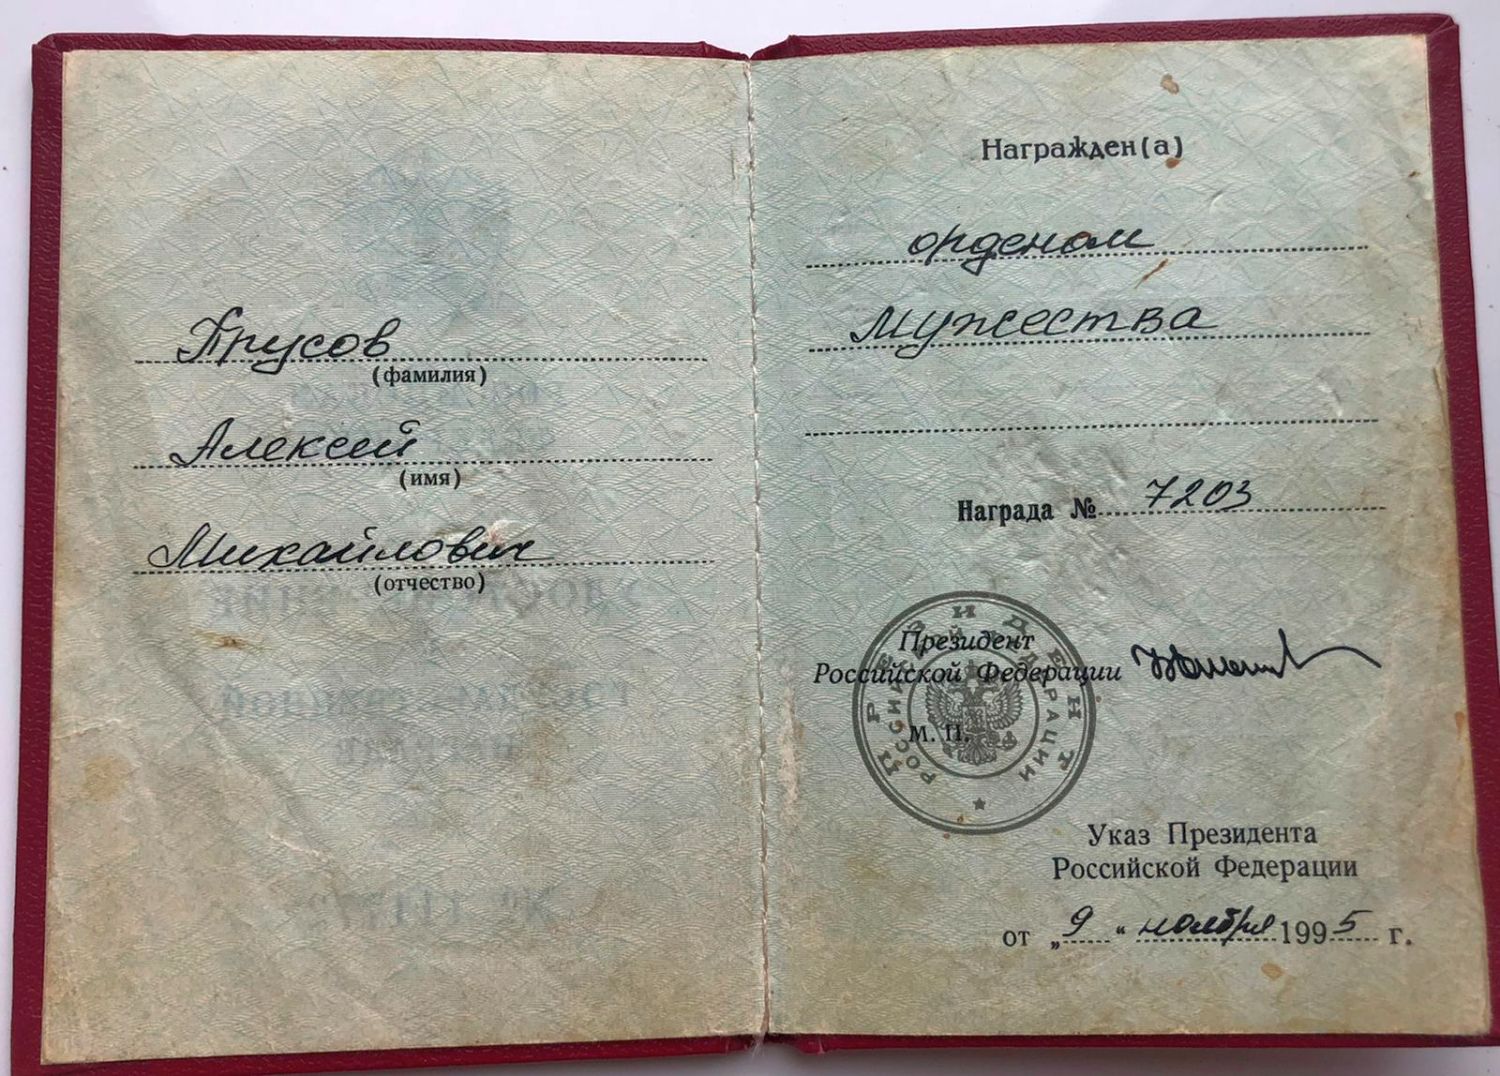 Трусов
(фамилия)
Алексей
(имя)
Михайлович
(отчество)
Награжден(а)
орденом
Мужества
Награда № 7203
ПРЕЗИДЕНТ
РОССИЙСКОЙ ФЕДЕРАЦИИ
Президент
Российской Федерации
М. П.
Указ Президента
Российской Федерации
от „9“ ноября 1995 г.